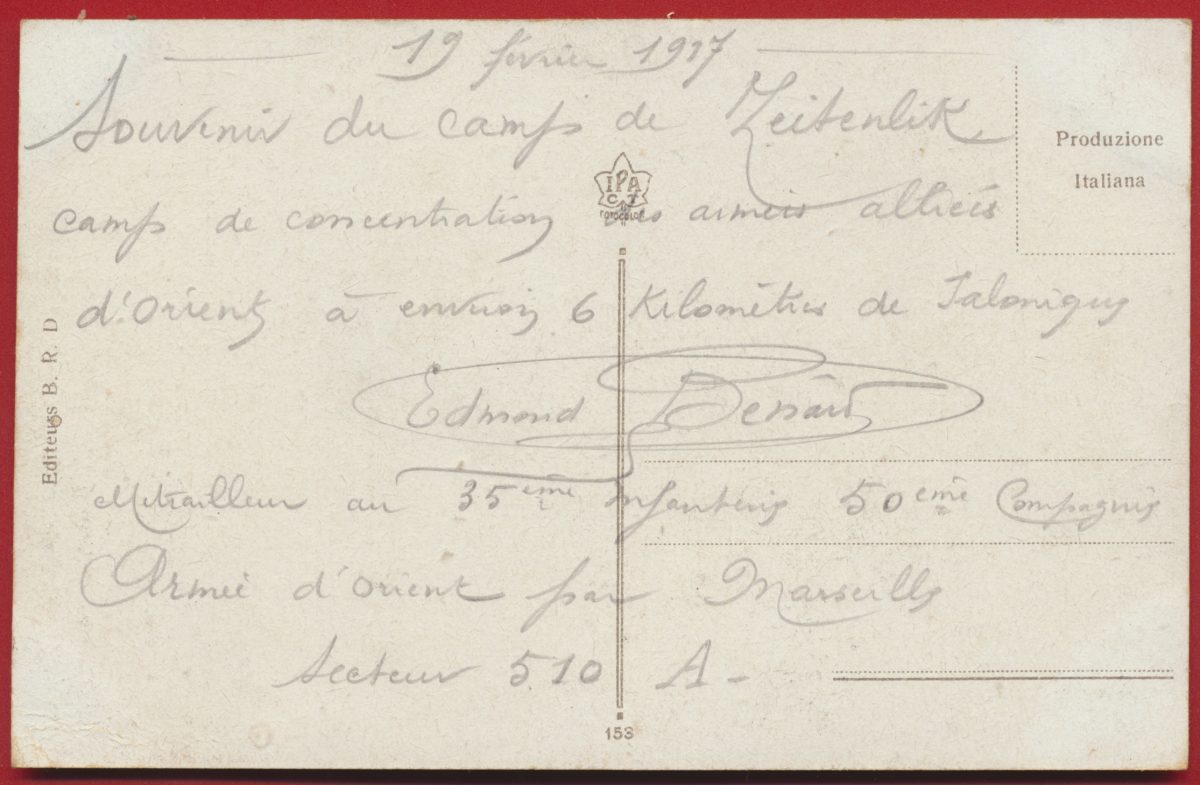 19 février 1917
Souvenir du camp de Zeitenlik
camp de concentration des armées alliées
d'Orient à environ 6 Kilomètres de Salonique
Edmond
Mitrailleur au 35ème Infanterie 50ème Compagnie
Armée d'Orient par Marseille
Secteur 510 A-
Produzione
Italiana
IPA
CT
ROTOCOLOR
Editeurs B. R. D
153